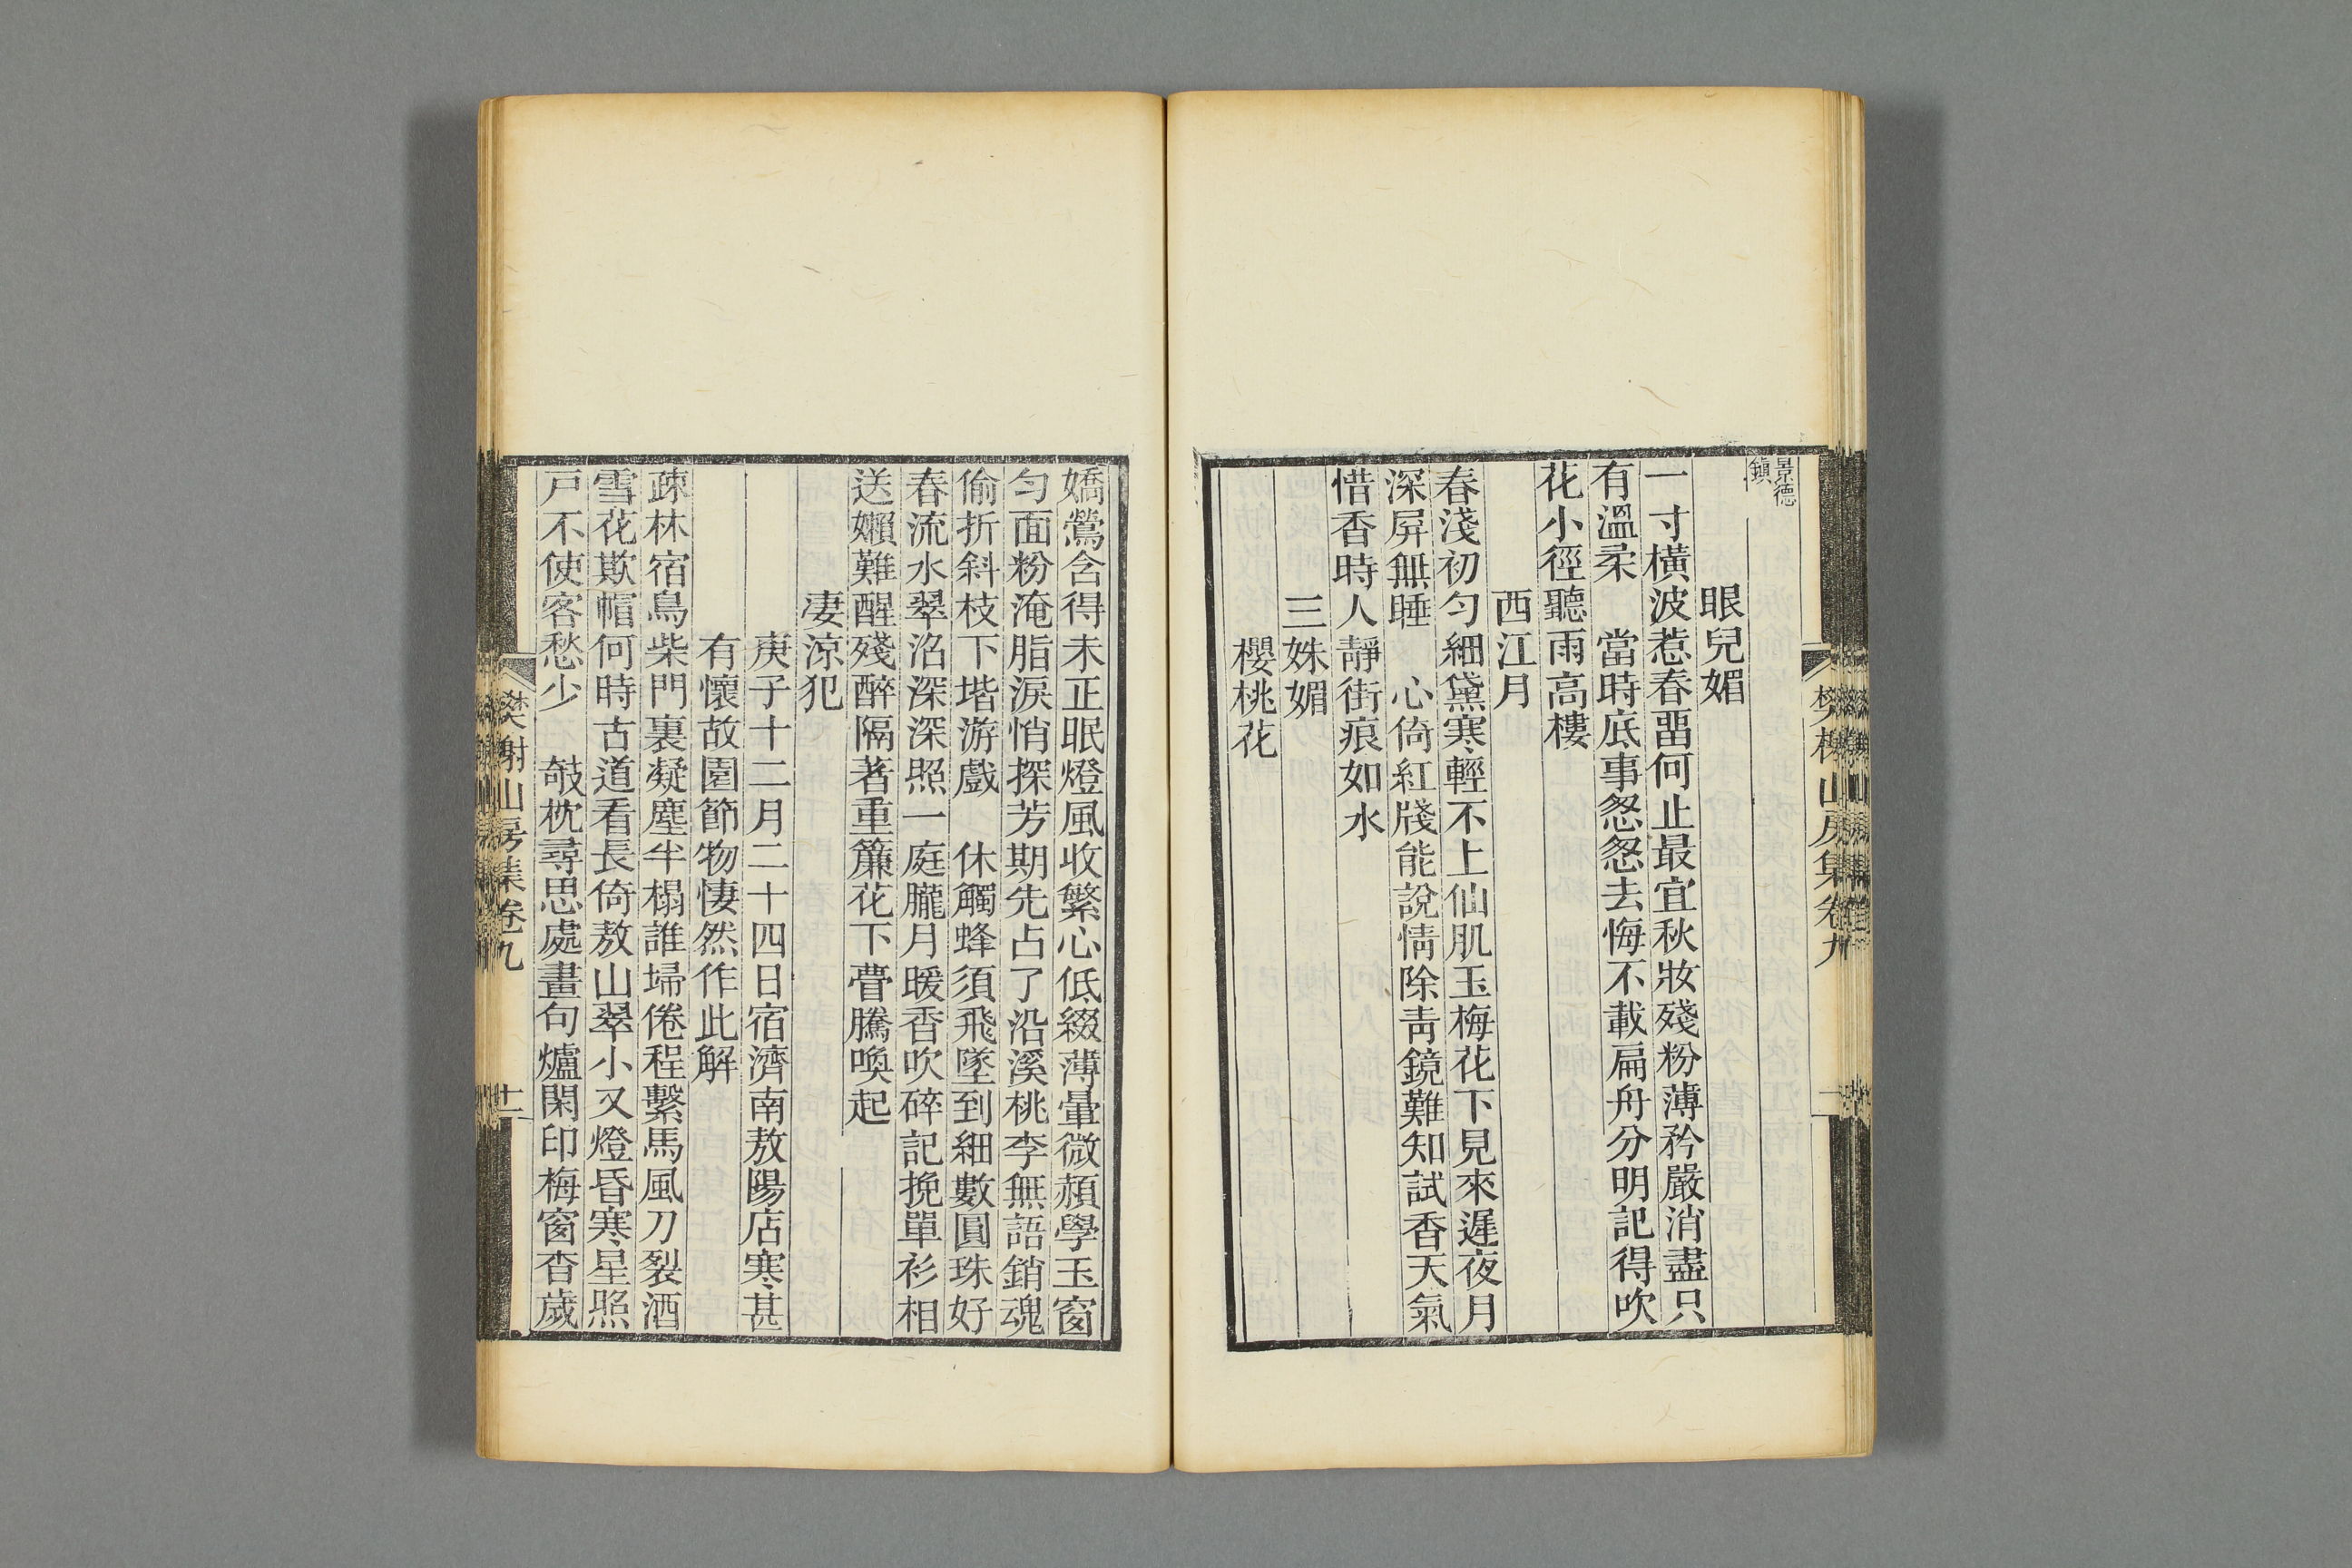 景德
鎮
眼兒媚
一寸橫波惹春畱何止最宜秋妝殘粉薄矜嚴消盡只
有溫柔　當時底事怱怱去悔不載扁舟分明記得吹
花小徑聽雨高樓
西江月
春淺初勻細黛寒輕不上仙肌玉梅花下見來遲夜月
深屏無睡　心倚紅牋能說情除靑鏡難知試香天氣
惜香時人靜街痕如水
三姝媚
櫻桃花
嬌鶯含得未正眠燈風收繁心低綴薄暈微頳學玉窗
勻面粉淹脂淚悄探芳期先占了沿溪桃李無語銷魂
偷折斜枝下堦游戲　休觸蜂須飛墜到細數圓珠好
春流水翠淊深深照一庭朧月暖香吹碎記挽單衫相
送嬾難醒殘醉隔著重簾花下瞢騰喚起
凄涼犯
庚子十二月二十四日宿濟南敖陽店寒甚
有懷故園節物悽然作此解
疎林宿鳥柴門裏凝塵半榻誰埽倦程繫馬風刀裂酒
雪花欺帽何時古道看長倚敖山翠小又燈昏寒星照
戶不使客愁少　攲枕尋思處畫句爐閑印梅窗杳歲
樊榭山房集卷九
十一